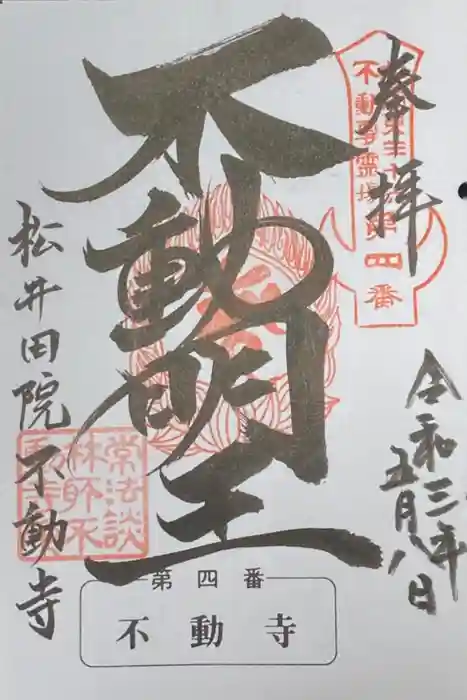 奉拝
令和三年
五月八日
不動明王
松井田院不動寺
不動尊霊場第四番
常法談
林所不
動寺
第四番
不動寺